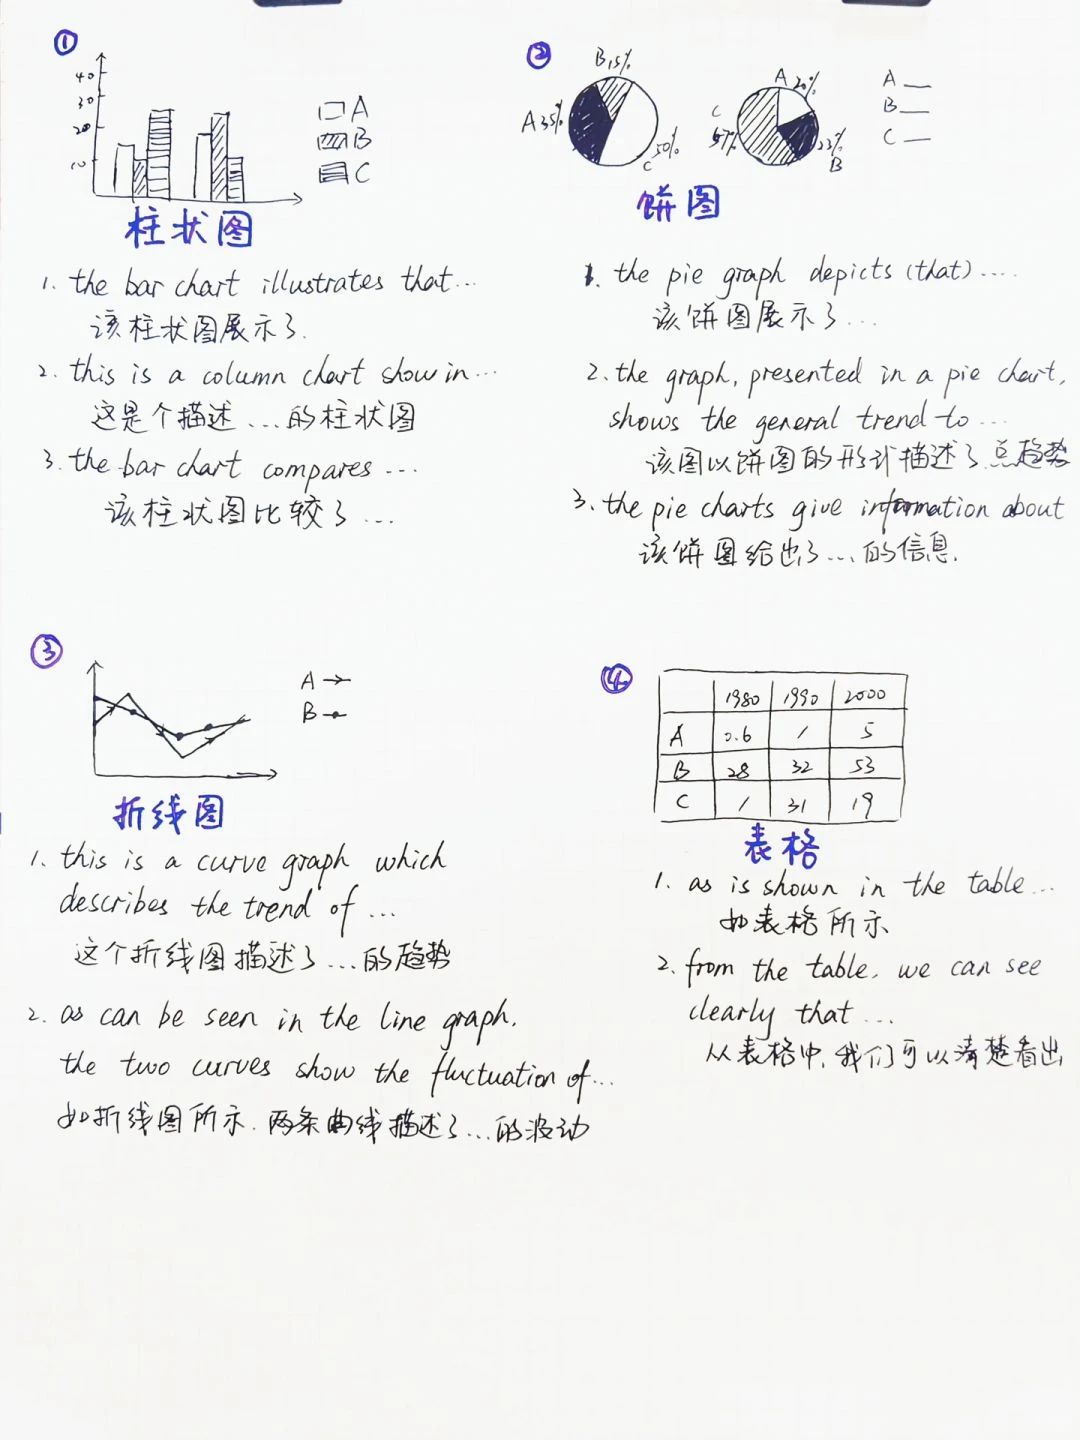 ①
40
30
20
10
A
B
C
柱状图
1. the bar chart illustrates that...
该柱状图展示了.
2. this is a column chart show in...
这是个描述...的柱状图
3. the bar chart compares ...
该柱状图比较了...
②
B 15%
A 35%
C 50%
A 20%
C 57%
23% B
A
B
C
饼图
1. the pie graph depicts (that)....
该饼图展示了...
2. the graph, presented in a pie chart,
shows the general trend to...
该图以饼图的形式描述了总趋势
3. the pie charts give information about
该饼图给出了...的信息.
③
A
B
折线图
1. this is a curve graph which
describes the trend of ...
这个折线图描述了...的趋势
2. as can be seen in the line graph,
the two curves show the fluctuation of...
如折线图所示, 两条曲线描述了...的波动
④
1980 1990 2000
A 0.6 1 5
B 28 32 53
C 1 31 19
表格
1. as is shown in the table...
如表格所示
2. from the table, we can see
clearly that ...
从表格中, 我们可以清楚看出